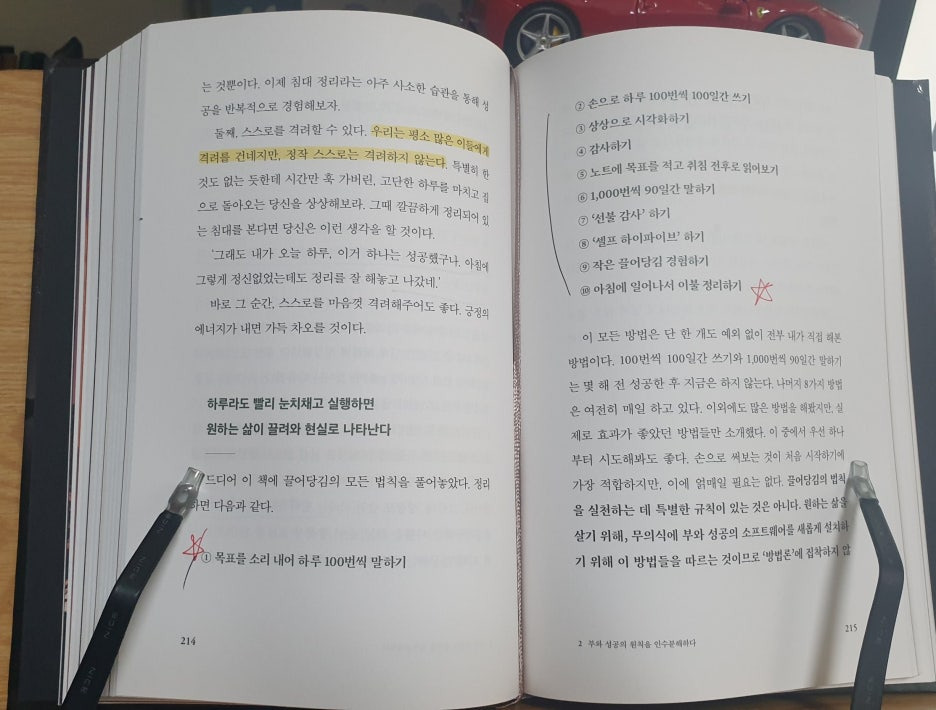 는 것뿐이다. 이제 침대 정리라는 아주 사소한 습관을 통해 성
공을 반복적으로 경험해보자.
둘째, 스스로를 격려할 수 있다. 우리는 평소 많은 이들에게
격려를 건네지만, 정작 스스로는 격려하지 않는다. 특별히 한
것도 없는 듯한데 시간만 훅 가버린, 고단한 하루를 마치고 집
으로 돌아오는 당신을 상상해보라. 그때 깔끔하게 정리되어 있
는 침대를 본다면 당신은 이런 생각을 할 것이다.
'그래도 내가 오늘 하루, 이거 하나는 성공했구나. 아침에
그렇게 정신없었는데도 정리를 잘 해놓고 나갔네.'
바로 그 순간, 스스로를 마음껏 격려해주어도 좋다. 긍정의
에너지가 내면 가득 차오를 것이다.
하루라도 빨리 눈치채고 실행하면
원하는 삶이 끌려와 현실로 나타난다
드디어 이 책에 끌어당김의 모든 법칙을 풀어놓았다. 정리
하면 다음과 같다.
① 목표를 소리 내어 하루 100번씩 말하기
214
② 손으로 하루 100번씩 100일간 쓰기
③ 상상으로 시각화하기
④ 감사하기
⑤ 노트에 목표를 적고 취침 전후로 읽어보기
⑥ 1,000번씩 90일간 말하기
⑦ '선불 감사' 하기
⑧ '셀프 하이파이브' 하기
⑨ 작은 끌어당김 경험하기
⑩ 아침에 일어나서 이불 정리하기
이 모든 방법은 단 한 개도 예외 없이 전부 내가 직접 해본
방법이다. 100번씩 100일간 쓰기와 1,000번씩 90일간 말하기
는 몇 해 전 성공한 후 지금은 하지 않는다. 나머지 8가지 방법
은 여전히 매일 하고 있다. 이외에도 많은 방법을 해봤지만, 실
제로 효과가 좋았던 방법들만 소개했다. 이 중에서 우선 하나
부터 시도해봐도 좋다. 손으로 써보는 것이 처음 시작하기에
가장 적합하지만, 이에 얽매일 필요는 없다. 끌어당김의 법칙
을 실천하는 데 특별한 규칙이 있는 것은 아니다. 원하는 삶을
살기 위해, 무의식에 부와 성공의 소프트웨어를 새롭게 설치하
기 위해 이 방법들을 따르는 것이므로 '방법론'에 집착하지 않
2 부와 성공의 원칙을 인수분해하다
215
NICE
NICE
NICE